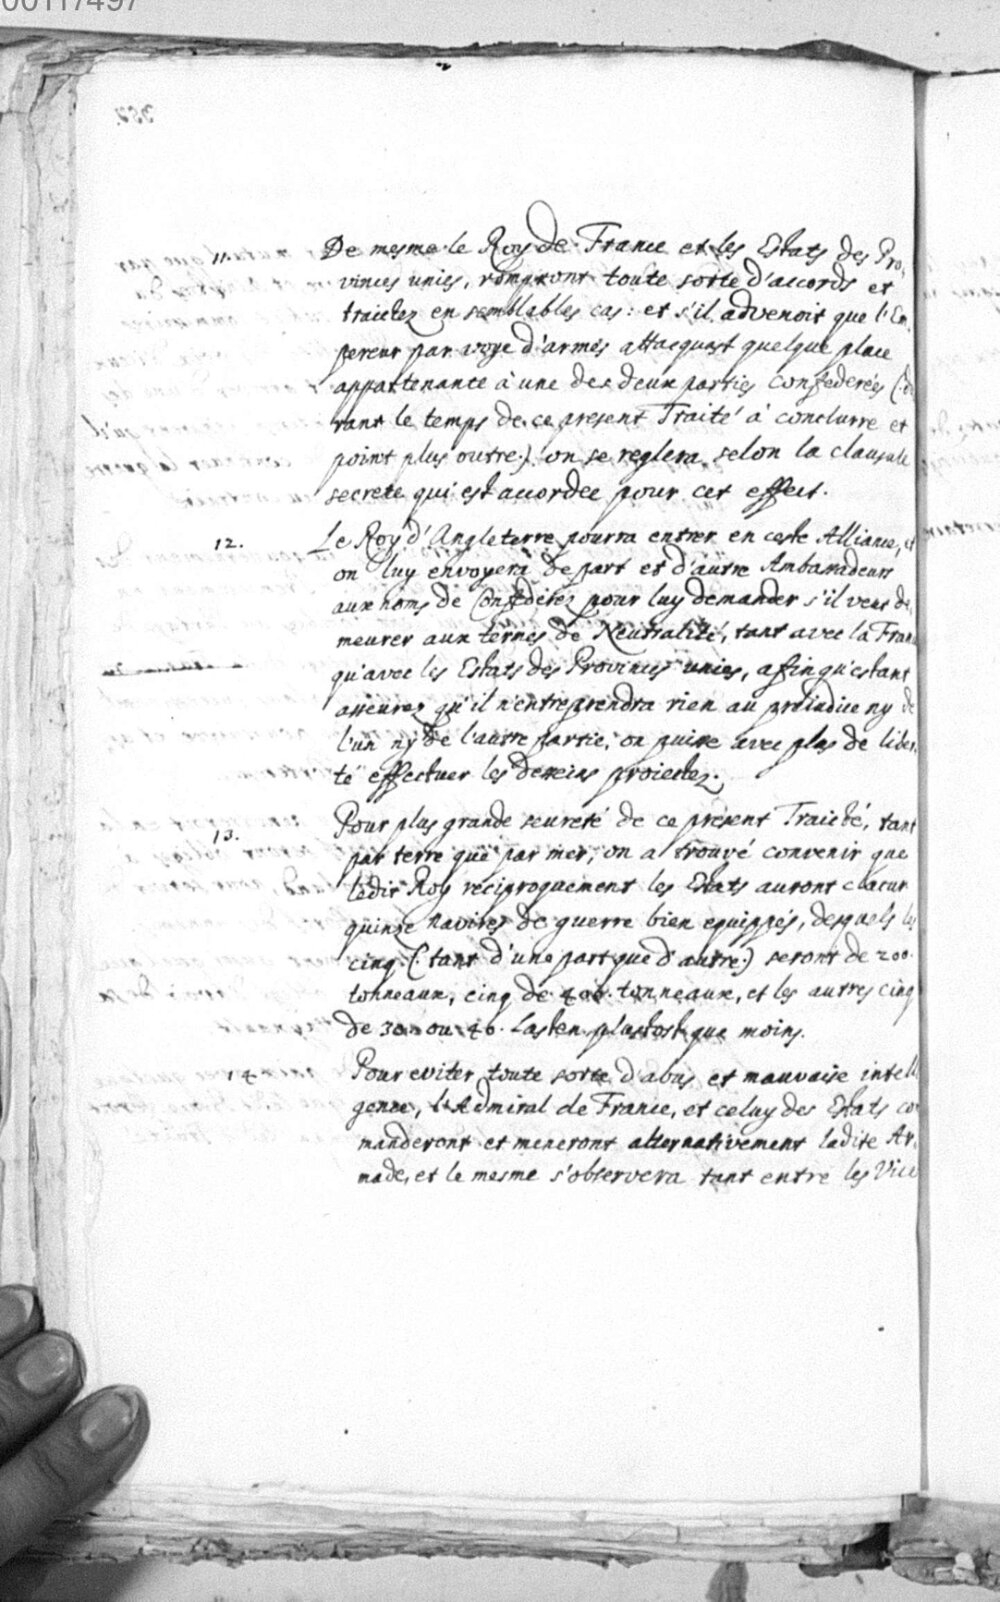 00117497
11. De mesme le Roy de France et les Estats des Pro,
vinces unies, rompront toute sorte d'accords et
traictez en semblables cas: et s'il advenoit que l'Em
pereur par voye d'armes attacquast quelque place
appartenante à une des deux parties confederées (: du
rant le temps de ce present Traité à conclurre et
point plus outre:) on se reglera selon la clausule
secrete qui est accordee pour cet effect.
12. Le Roy d'Angleterre pourra entrer en ceste Alliance, et
on luy envoyera de part et d'autre Ambassadeurs
aux noms de Confederez pour luy demander s'il veut de,
meurer aux termes de Neutralité, tant avec la France
qu'avec les Estats des Provinces unies, afin qu'estant
asseurez qu'il n'entreprendra rien au preiudice ny de
l'un ny de l'autre partie, on puisse avec plus de liber,
té effectuer les desseins proiectez.
13. Pour plus grande seureté de ce present Traicté, tant
par terre que par mer, on a trouvé convenir que
ledit Roy reciproquement les Estats auront chacun
quinze navires de guerre bien equippés, desquels les
cinq (: tant d'une part que d'autre:) seront de 200.
tonneaux, cinq de 400. tonneaux, et les autres cinq
de 30 ou 40. Lasten plustost que moins.
14 Pour eviter toute sorte d'abus et mauvaise intelli
gence, l'Admiral de France, et celuy des Estats co
manderont et meneront alternativement ladite Ar,
made, et le mesme s'observera tant entre les Vice